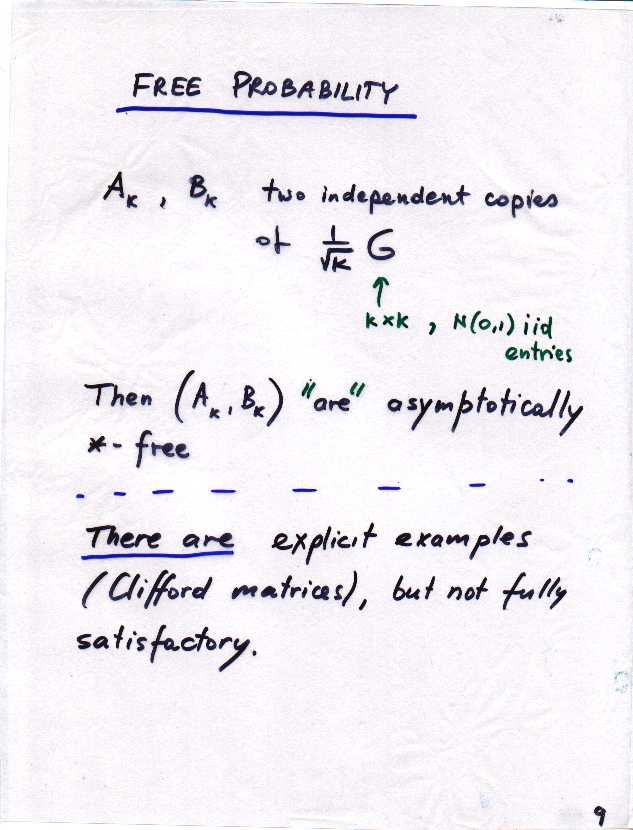 FREE PROBABILITY
A_K , B_K two independent copies
of 1/√K G
↑
K×K , N(0,1) iid
entries
Then (A_K, B_K) "are" asymptotically
*-free
There are explicit examples
(Clifford matrices), but not fully
satisfactory.
9